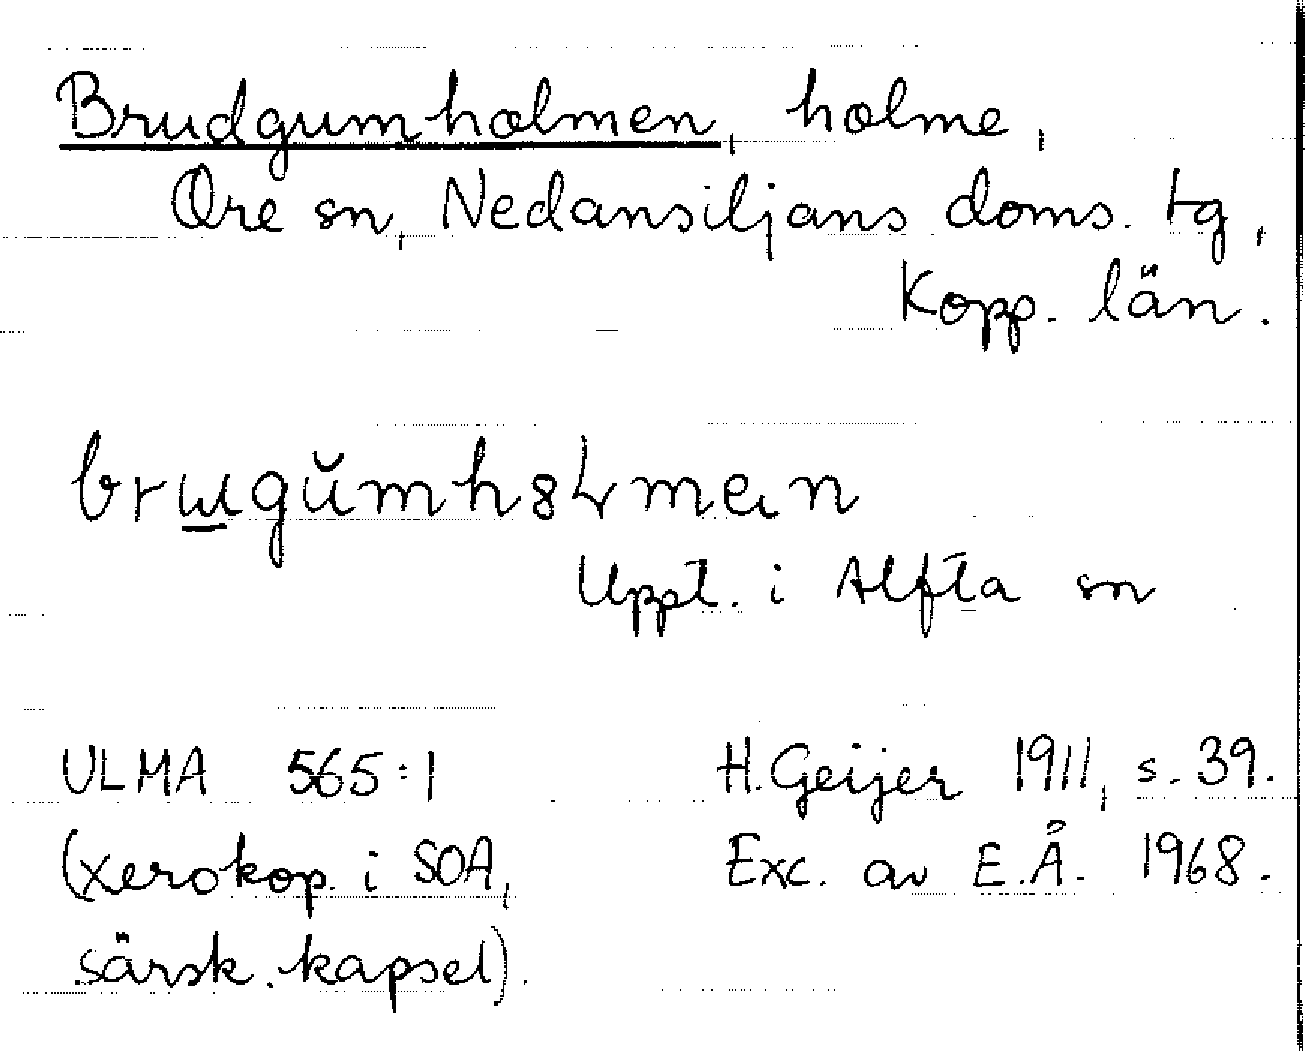 Brudgumholmen, holme,
Ore sn, Nedansiljans doms. tg,
Kopp. län.
Uppt. i Alfta sn
ULMA 565:1
(xerokop. i SOA,
särsk. kapsel).
H. Geijer 1911, s. 39.
Exc. av E.Å. 1968.